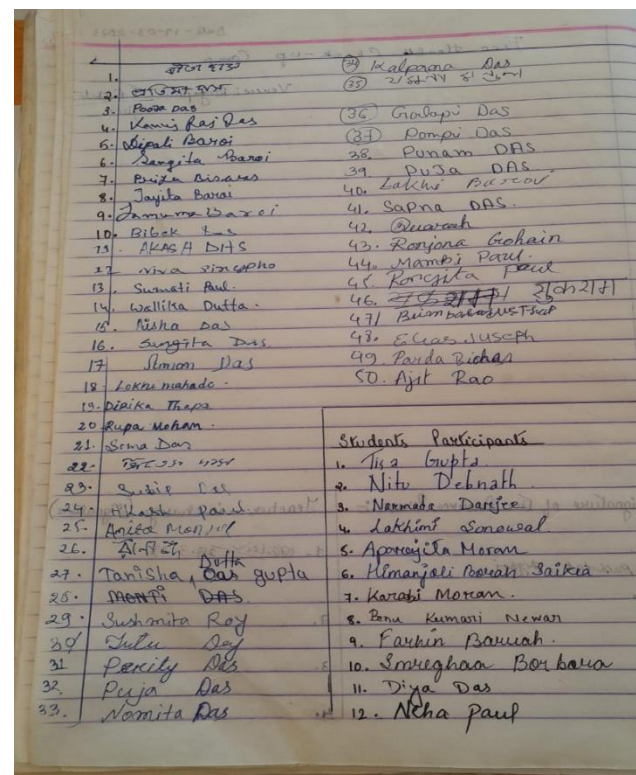 1.
2.
3. Pooza Das
4. Kamis Raj Das
5. Dipali Baroi
6. Sangita Baroi
7. Priya Biswas
8. Jayita Barai
9. Jamuna Baroi
10. Bibek Das
AKASH DAS
Niva Singpho
13. Sumati Paul.
14. Wallika Dutta.
15. Nisha Das
16. Sangita Das
17 Simion Das
18 Lokhi mahado.
19. Dipika Thapa
20 Rupa Mohan.
21. Soma Das
22.
23. Subir Das
24. Akash paul
25. Anita Mondol
26.
Dutta
27. Tanisha, Das gupta
28. MONTI DAS
29. Sushmita Roy
30 Tulu Dey
31 Parily Das
32. Puja Das
33. Nomita Das
34 Kalpana Das
35
36 Golapi Das
37 Pompi Das
38. Punam DAS
39. PuJa DAS
40. Lakhi
41. Sapna DAS.
42.
43. Ronjona Gohain
44. Mambi Paul.
45. Rongita paul
46. शुकराम
47
48. Elias Juseph
49. Parda Bichas
50. Ajit Rao
Students Participants
1. Tisa Gupta
2. Nitu Debnath
3. Narmada Darjee
4. Lakhimi Sonowal.
5. Aparajita Moran
6. Himanjali Borah Saikia
7. Karabi Moran.
8. Benu Kumari Newar
9. Farhin Baruah.
10. Borbora
11. Diya Das
12. Neha Paul